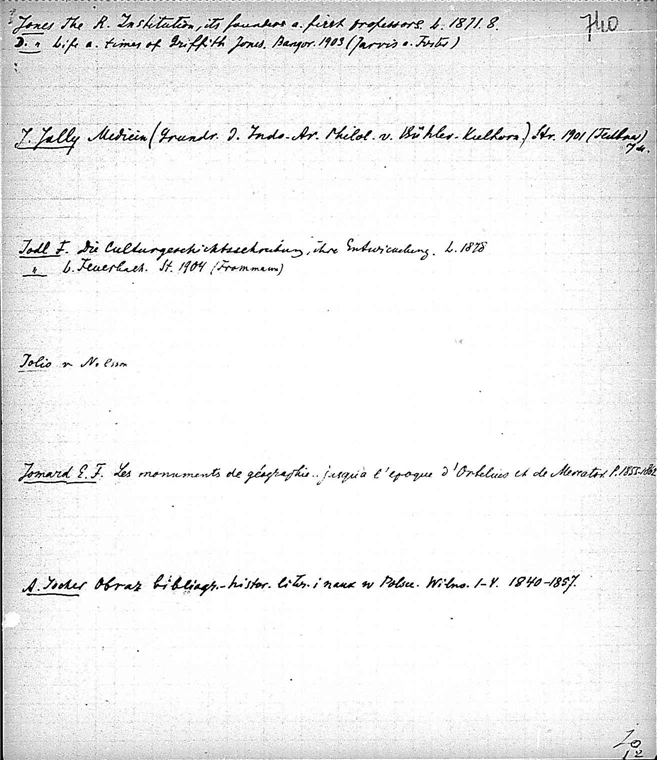 740
Jones The R. Institution, its founder a. first professors. L. 1871. 8.
D. " Life a. times of Griffith Jones. Bangor. 1903 (Jarvis a. Foster)
J. Jolly Medicin (Grundr. d. Indo-Ar. Philol. v. Bühler-Kielhorn) Str. 1901 (Teubner)
7 M.
Jodl F. Die Culturgeschichtsschreibung, ihre Entwickelung. L. 1878
" L. Feuerbach. St. 1904 (Frommann)
Jolio v
Jomard E. F. Les monuments de géographie.. jusqu'à l'époque d'Ortelius et de Mercator. P. 1855-1862
A. Jocher Obraz bibliogr.-histor. liter. i nauk w Polsce. Wilno. I-V. 1840-1857.
Jo
12